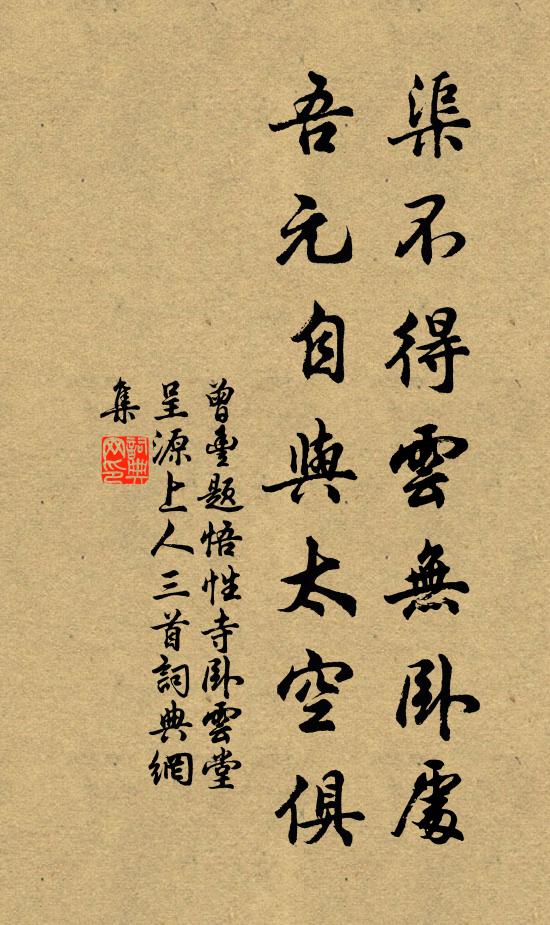 渠不得雲無卧處
吾元自與太空俱
曾豊題悟性寺卧雲堂
呈源上人三首詞典網
集
詞典網印